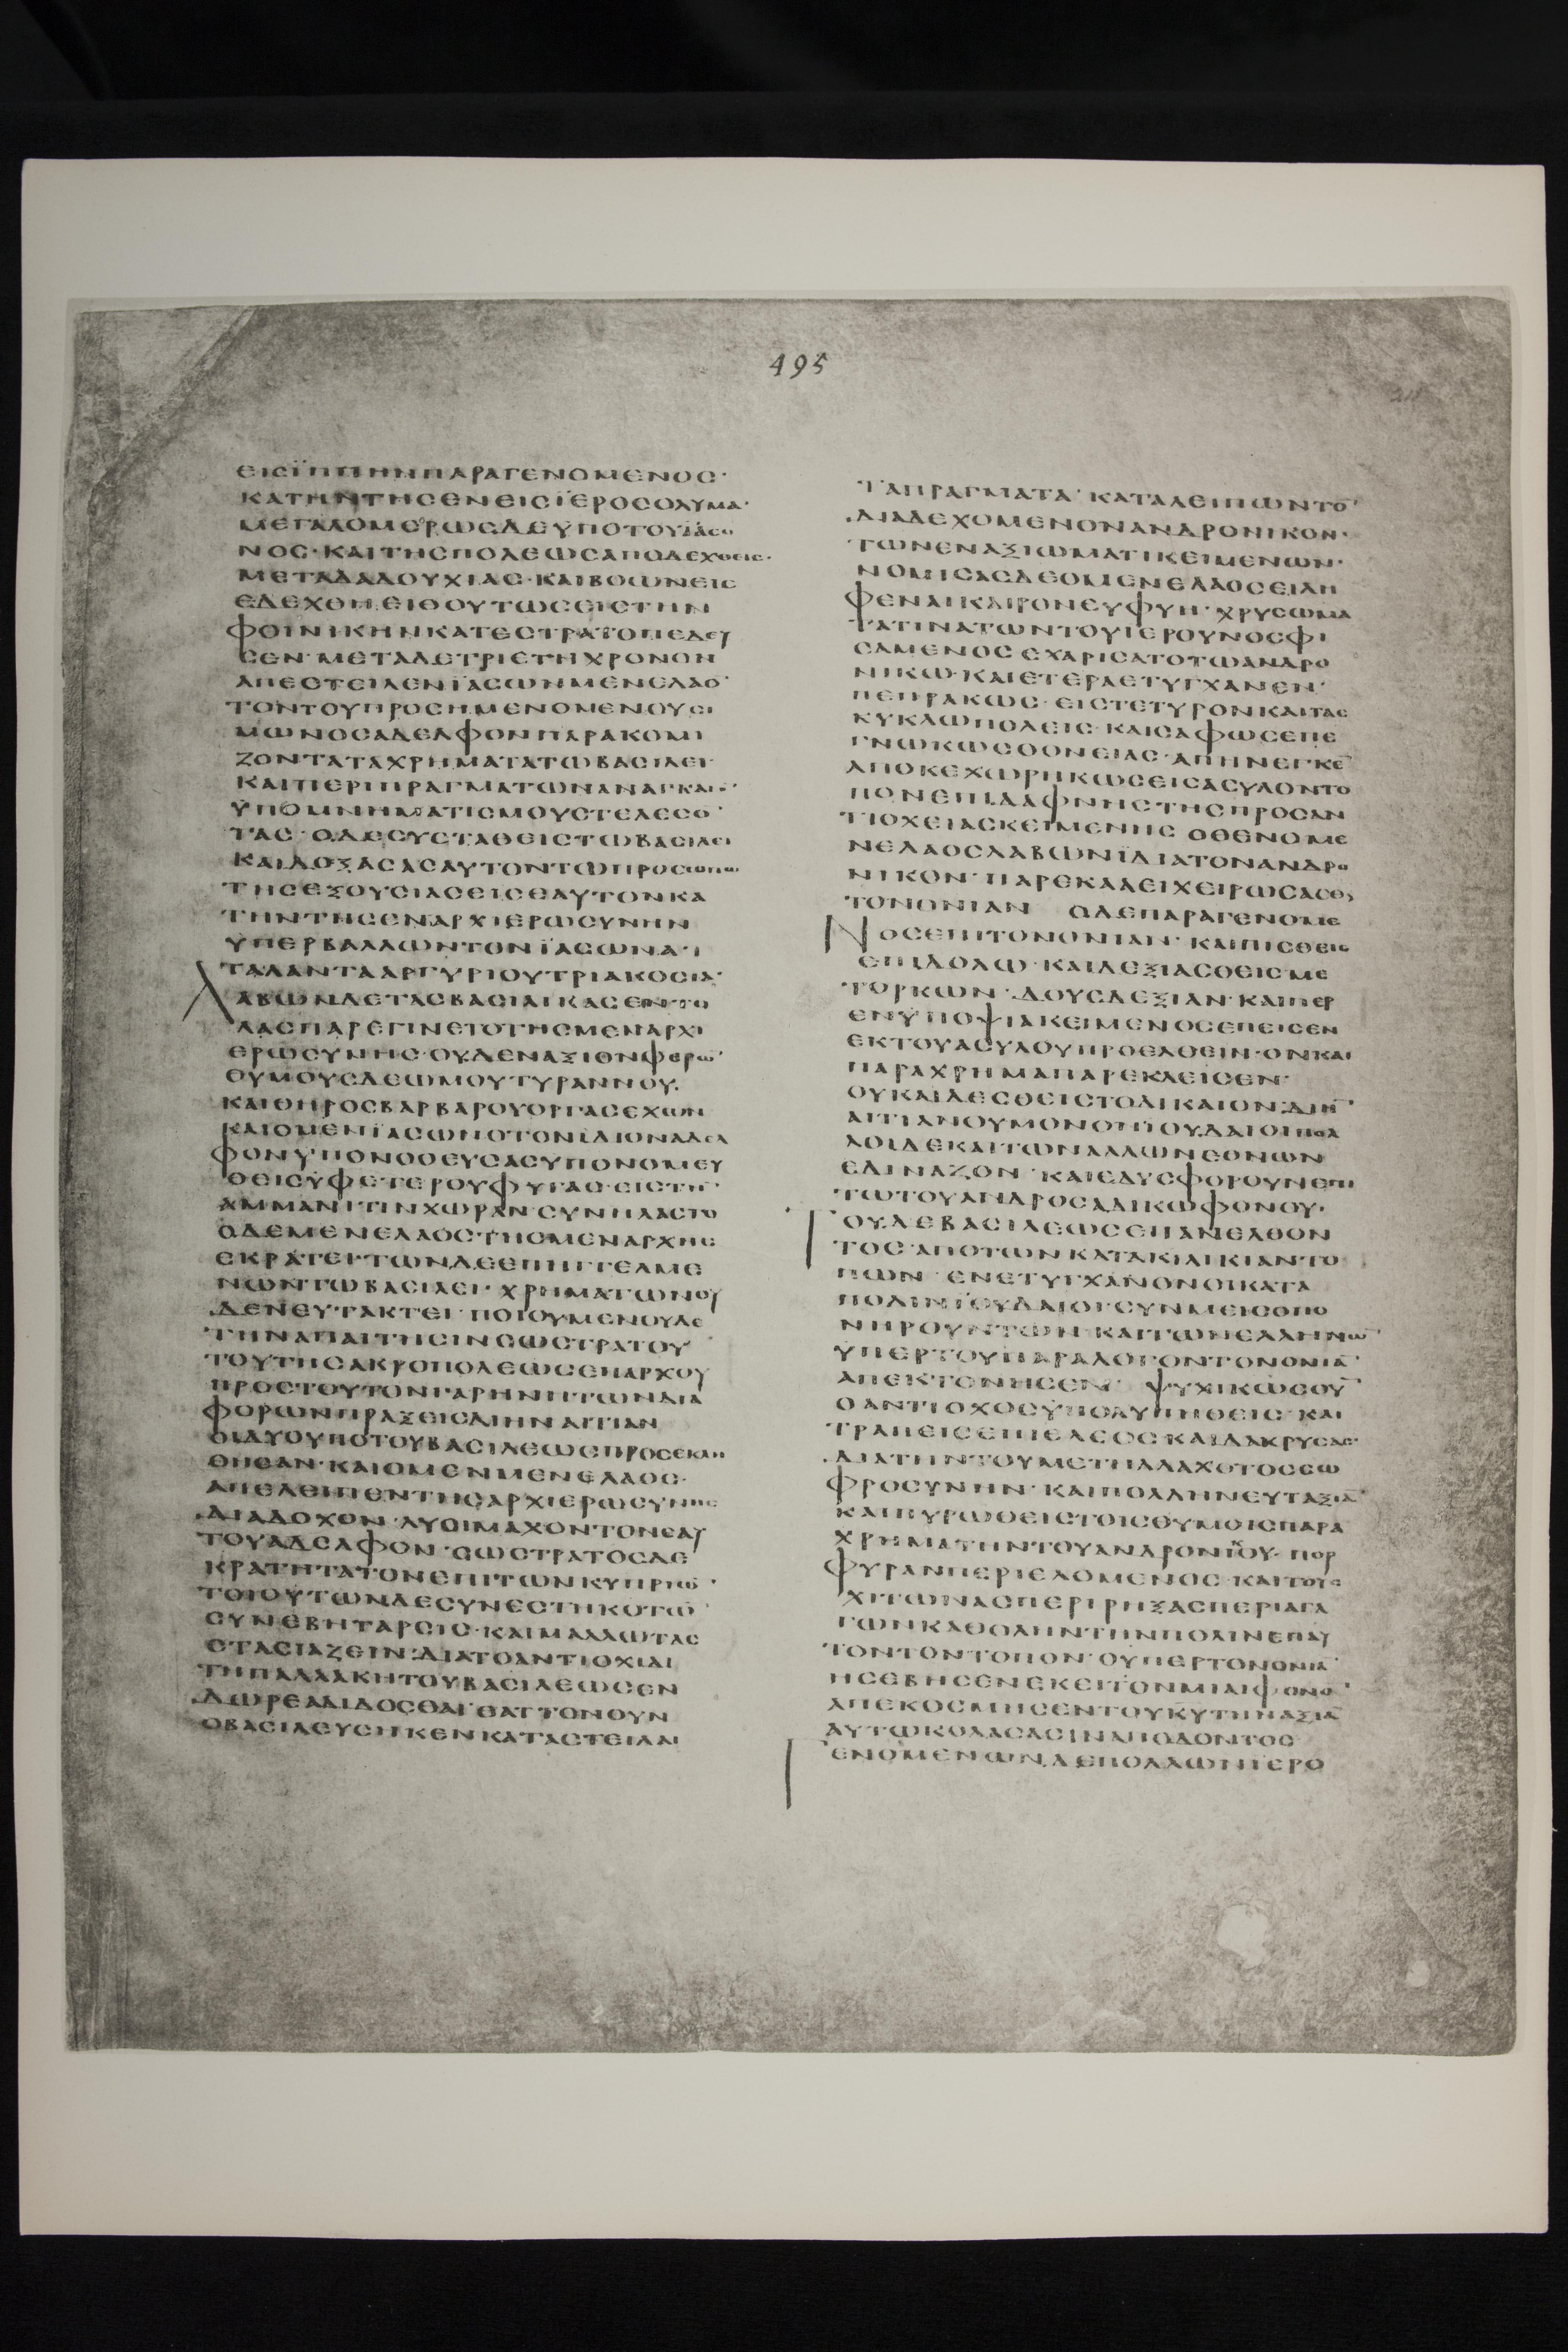 495
ΕΙCΪΠΠΗΝΠΑΡΑΓΕΝΟΜΕΝΟC·
ΚΑΤΗΝΤΗCΕΝΕΙCΪΕΡΟCΟΛΥΜΑ·
ΜΕΓΑΛΟΜΕΡΩCΔΕΫΠΟΤΟΥΪΑCΩ
ΝΟC·ΚΑΙΤΗCΠΟΛΕΩCΑΠΟΔΕΧΘΕΙC·
ΜΕΤΑΔΑΔΟΥΧΙΑC·ΚΑΙΒΟΩΝΕΙC
ΕΔΕΧΘΗ·ΕΙΘΟΥΤΩCΕΙCΤΗΝ
ΦΟΙΝΙΚΗΝΚΑΤΕCΤΡΑΤΟΠΕΔΕΥ
CΕΝ·ΜΕΤΑΔΕΤΡΙΕΤΗΧΡΟΝΟΝ
ΑΠΕCΤΕΙΛΕΝΪΑCΩΝΜΕΝΕΛΑΟ̄
ΤΟΝΤΟΥΠΡΟCΗΜΕΝΟΜΕΝΟΥCΙ
ΜΩΝΟCΑΔΕΛΦΟΝΠΑΡΑΚΟΜΙ
ΖΟΝΤΑΤΑΧΡΗΜΑΤΑΤΩΒΑCΙΛΕΙ·
ΚΑΙΠΕΡΙΠΡΑΓΜΑΤΩΝΑΝΑΓΚΑΙΩ̄
ΫΠΟΜΝΗΜΑΤΙCΜΟΥCΤΕΛΕCΟ̄
ΤΑC·ΟΔΕCΥCΤΑΘΕΙCΤΩΒΑCΙΛΕΙ
ΚΑΙΔΟΞΑCΑCΑΥΤΟΝΤΩΠΡΟCΩΠΩ
ΤΗCΕΞΟΥCΙΑCΕΙCΕΑΥΤΟΝΚΑ
ΤΗΝΤΗCΕΝΑΡΧΙΕΡΩCΥΝΗΝ
ΥΠΕΡΒΑΛΛΩΝΤΟΝΪΑCΩΝΑ·
ΤΑΛΑΝΤΑΑΡΓΥΡΙΟΥΤΡΙΑΚΟCΙΑ·
ΛΑΒΩΝΔΕΤΑCΒΑCΙΛΙΚΑCΕΝΤΟ
ΛΑCΠΑΡΕΓΙΝΕΤΟΤΗCΜΕΝΑΡΧΙ
ΕΡΩCΥΝΗC·ΟΥΔΕΝΑΞΙΟΝΦΕΡΩ̄
ΘΥΜΟΥCΔΕΩΜΟΥΤΥΡΑΝΝΟΥ.
ΚΑΙΘΗΡΟCΒΑΡΒΑΡΟΥΟΡΓΑCΕΧΩΝ
ΚΑΙΟΜΕΝΪΑCΩΝΟΤΟΝΙΔΙΟΝΑΔΕΛ
ΦΟΝΫΠΟΝΟΘΕΥCΑCΥΠΟΝΟΜΕΥ
ΘΕΙCΥΦΕΤΕΡΟΥΦΥΓΑC·ΕΙCΤΗ̄
ΑΜΜΑΝΙΤΙΝΧΩΡΑΝ·CΥΝΗΛΑCΤΟ
ΟΔΕΜΕΝΕΛΑΟCΤΗCΜΕΝΑΡΧΗC
ΕΚΡΑΤΕΙ·ΤΩΝΔΕΕΠΗΓΓΕΛΜΕ
ΝΩΝΤΩΒΑCΙΛΕΙ·ΧΡΗΜΑΤΩΝΟΥ
ΔΕΝΕΥΤΑΚΤΕΙ·ΠΟΙΟΥΜΕΝΟΥΔΕ
ΤΗΝΑΠΑΙΤΗCΙΝCΩCΤΡΑΤΟΥ
ΤΟΥΤΗCΑΚΡΟΠΟΛΕΩCΕΠΑΡΧΟΥ
ΠΡΟCΤΟΥΤΟΝΓΑΡΗΝΗΤΩΝΔΙΑ
ΦΟΡΩΝΠΡΑΞΕΙCΔΙΗΝΑΙΤΙΑΝ
ΟΙΔΥΟΥΠΟΤΟΥΒΑCΙΛΕΩCΠΡΟCΕΚΛΗ
ΘΗCΑΝ·ΚΑΙΟΜΕΝΜΕΝΕΛΑΟC·
ΑΠΕΛΕΙΠΕΝΤΗCΑΡΧΙΕΡΩCΥΝΗC
ΔΙΑΔΟΧΟΝ·ΛΥCΙΜΑΧΟΝΤΟΝΕΑΥ
ΤΟΥΑΔΕΛΦΟΝ·CΩCΤΡΑΤΟCΔΕ
ΚΡΑΤΗΤΑΤΟΝΕΠΙΤΩΝΚΥΠΡΙΩ̄·
ΤΟΙΟΥΤΩΝΔΕCΥΝΕCΤΗΚΟΤΩ̄
CΥΝΕΒΗΤΑΡCΙC·ΚΑΙΜΑΛΛΩΤΑC
CΤΑCΙΑΖΕΙΝ·ΔΙΑΤΟΑΝΤΙΟΧΙΔΙ
ΤΗΠΑΛΛΑΚΗΤΟΥΒΑCΙΛΕΩCΕΝ
ΔΩΡΕΑΔΙΔΟCΘΑΙ·ΘΑΤΤΟΝΟΥΝ
ΟΒΑCΙΛΕΥCΗΚΕΝΚΑΤΑCΤΕΙΛΑΙ
ΤΑΠΡΑΓΜΑΤΑ·ΚΑΤΑΛΕΙΠΩΝΤΟ̄
ΔΙΑΔΕΧΟΜΕΝΟΝΑΝΔΡΟΝΙΚΟΝ·
ΤΩΝΕΝΑΞΙΩΜΑΤΙΚΕΙΜΕΝΩΝ·
ΝΟΜΙCΑCΔΕΟΜΕΝΕΛΑΟCΕΙΛΗ
ΦΕΝΑΙΚΑΙΡΟΝΕΥΦΥΗ·ΧΡΥCΩΜΑ
ΤΑΤΙΝΑΤΩΝΤΟΥΙΕΡΟΥΝΟCΦΙ
CΑΜΕΝΟCΕΧΑΡΙCΑΤΟΤΩΑΝΔΡΟ
ΝΙΚΩ·ΚΑΙΕΤΕΡΑΕΤΥΓΧΑΝΕΝ·
ΠΕΠΡΑΚΩC·ΕΙCΤΕΤΥΡΟΝΚΑΙΤΑC
ΚΥΚΛΩΠΟΛΕΙC·ΚΑΙCΑΦΩCΕΠΕ
ΓΝΩΚΩCΟΟΝΕΙΑC·ΑΠΗΝΕΓΚΕ̄
ΑΠΟΚΕΧΩΡΗΚΩCΕΙCΑCΥΛΟΝΤΟ
ΠΟΝΕΠΙΔΑΦΝΗCΤΗCΠΡΟCΑΝ
ΤΙΟΧΕΙΑCΚΕΙΜΕΝΗC ΟΘΕΝΟΜΕ
ΝΕΛΑΟCΛΑΒΩΝΪΔΙΑΤΟΝΑΝΔΡΟ
ΝΙΚΟΝ·ΠΑΡΕΚΑΛΕΙΧΕΙΡΩCΑCΘΑΙ
ΤΟΝΟΝΙΑΝ ΟΔΕΠΑΡΑΓΕΝΟΜΕ
ΝΟCΕΠΙΤΟΝΟΝΙΑΝ·ΚΑΙΠΙCΘΕΙC
ΕΠΙΔΟΛΩ·ΚΑΙΔΕΞΙΑCΘΕΙCΜΕ
ΤΟΡΚΩΝ·ΔΟΥCΔΕΞΙΑΝ·ΚΑΙΠΕΡ
ΕΝΫΠΟΨΙΑΚΕΙΜΕΝΟCΕΠΕΙCΕΝ
ΕΚΤΟΥΑCΥΛΟΥΠΡΟΕΛΘΕΙΝ·ΟΝΚΑΙ
ΠΑΡΑΧΡΗΜΑΠΑΡΕΚΛΕΙCΕΝ·
ΟΥΚΑΙΔΕCΘΕΙCΤΟΔΙΚΑΙΟΝ·ΔΙΗ̄
ΑΙΤΙΑΝΟΥΜΟΝΟΝΪΟΥΔΑΙΟΙΠΟΛ
ΛΟΙΔΕΚΑΙΤΩΝΑΛΛΩΝΕΘΝΩΝ
ΕΔΙΝΑΖΟΝ·ΚΑΙΕΔΥCΦΟΡΟΥΝΕΠΙ
ΤΩΤΟΥΑΝΔΡΟCΑΔΙΚΩΦΟΝΟΥ·
ΤΟΥΔΕΒΑCΙΛΕΩCΕΠΑΝΕΛΘΟΝ
ΤΟC·ΑΠΟΤΩΝΚΑΤΑΚΙΛΙΚΙΑΝΤΟ
ΠΩΝ ΕΝΕΤΥΓΧΑΝΟΝΟΙΚΑΤΑ
ΠΟΛΙΝΪΟΥΔΑΙΟΙ·CΥΝΜΕΙCΟΠΟ
ΝΗΡΟΥΝΤΩΝ·ΚΑΙΤΩΝΕΛΛΗΝΩ̄
ΥΠΕΡΤΟΥΠΑΡΑΛΟΓΟΝΤΟΝΟΝΙᾹ
ΑΠΕΚΤΟΝΗCΕΝ· ΨΥΧΙΚΩCΟῩ
ΟΑΝΤΙΟΧΟCΫΠΟΛΥΠΗΘΕΙC·ΚΑΙ
ΤΡΑΠΕΙCΕΠΙΕΛΕΟC·ΚΑΙΔΑΚΡΥCΑC·
ΔΙΑΤΗΝΤΟΥΜΕΤΗΛΛΑΧΟΤΟCCΩ
ΦΡΟCΥΝΗΝ·ΚΑΙΠΟΛΛΗΝΕΥΤΑΞΙᾹ
ΚΑΙΠΥΡΩΘΕΙCΤΟΙCΘΥΜΟΙCΠΑΡΑ
ΧΡΗΜΑΤΗΝΤΟΥΑΝΔΡΟΝΪΟΥ·ΠΟΡ
ΦΥΡΑΝΠΕΡΙΕΛΟΜΕΝΟC·ΚΑΙΤΟΥC
ΧΙΤΩΝΑCΠΕΡΙΡΗΞΑCΠΕΡΙΑΓΑ
ΓΩΝΚΑΘΟΛΗΝΤΗΝΠΟΛΙΝΕΠΑΥ
ΤΟΝΤΟΝΤΟΠΟΝ·ΟΥΠΕΡΤΟΝΟΝΙᾹ
ΗCΕΒΗCΕΝΕΚΕΙΤΟΝΜΙΑΙΦΟΝΟ̄
ΑΠΕΚΟCΜΗCΕΝΤΟΥΚΥΤΗΝΑΞΙᾹ
ΑΥΤΩΚΟΛΑCΑCΙΝΑΠΟΔΟΝΤΟC
ΓΕΝΟΜΕΝΩΝΔΕΠΟΛΛΩΝΪΕΡΟ